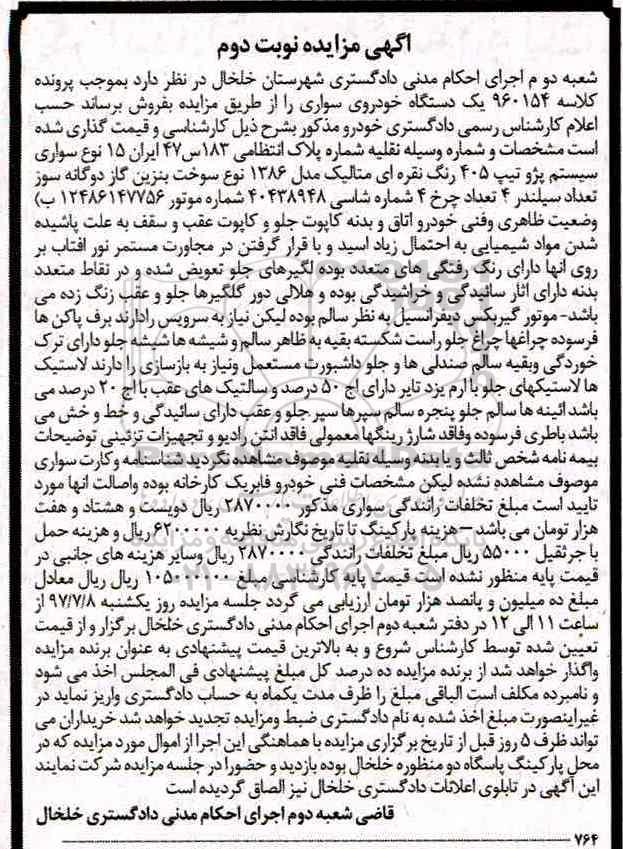 آگهی مزایده نوبت دوم
شعبه دو م اجرای احکام مدنی دادگستری شهرستان خلخال در نظر دارد بموجب پرونده
کلاسه ۹۶۰۱۵۴ یک دستگاه خودروی سواری را از طریق مزایده بفروش برساند حسب
اعلام کارشناس رسمی دادگستری خودرو مذکور بشرح ذیل کارشناسی و قیمت گذاری شده
است مشخصات و شماره وسیله نقلیه شماره پلاک انتظامی ۱۸۳س۴۷ ایران ۱۵ نوع سواری
سیستم پژو تیپ ۴۰۵ رنگ نقره ای متالیک مدل ۱۳۸۶ نوع سوخت بنزین گاز دوگانه سوز
تعداد سیلندر ۴ تعداد چرخ ۴ شماره شاسی ۴۰۴۳۸۹۴۸ شماره موتور ۱۲۴۸۶۱۴۷۷۵۶ ب)
وضعیت ظاهری وفنی خودرو اتاق و بدنه کاپوت جلو و کاپوت عقب و سقف به علت پاشیده
شدن مواد شیمیایی به احتمال زیاد اسید و با قرار گرفتن در مجاورت مستمر نور افتاب بر
روی انها دارای رنگ رفتگی های متعدد بوده لگیرهای جلو تعویض شده و در نقاط متعدد
بدنه دارای اثار سائیدگی و خراشیدگی بوده و هلالی دور گلگیرها جلو و عقب زنگ زده می
باشد- موتور گیربکس دیفرانسیل به نظر سالم بوده لیکن نیاز به سرویس رادارند برف پاکن ها
فرسوده چراغها چراغ جلو راست شکسته بقیه به ظاهر سالم و شیشه ها شیشه جلو دارای ترک
خوردگی وبقیه سالم صندلی ها و جلو داشبورت مستعمل ونیاز به بازسازی را دارند لاستیک
ها لاستیکهای جلو با ارم یزد تایر دارای اج ۵۰ درصد و سالتیک های عقب با اج ۲۰ درصد می
باشد ائینه ها سالم جلو پنجره سالم سپرها سپر جلو و عقب دارای سائیدگی و خط و خش می
باشد باطری فرسوده وفاقد شارژ رینگها معمولی فاقد انتن رادیو و تجهیزات تزئینی توضیحات
بیمه نامه شخص ثالث و یا بدنه وسیله نقلیه موصوف مشاهده نگردید شناسنامه و کارت سواری
موصوف مشاهده نشده لیکن مشخصات فنی خودرو فابریک کارخانه بوده واصالت انها مورد
تایید است مبلغ تخلفات رانندگی سواری مذکور ۲۸۷۰۰۰۰ ریال دویست و هشتاد و هفت
هزار تومان می باشد –هزینه پارکینگ تا تاریخ نگارش نظریه ۶۲۰۰۰۰۰ ریال و هزینه حمل
با جرثقیل ۵۵۰۰۰ ریال مبلغ تخلفات رانندگی ۲۸۷۰۰۰۰ ریال وسایر هزینه های جانبی در
قیمت پایه منظور نشده است قیمت پایه کارشناسی مبلغ ۱۰۵۰۰۰۰۰۰ ریال ریال معادل
مبلغ ده میلیون و پانصد هزار تومان ارزیابی می گردد جلسه مزایده روز یکشنبه ۹۷/۷/۸ از
ساعت ۱۱ الی ۱۲ در دفتر شعبه دوم اجرای احکام مدنی دادگستری خلخال برگزار و از قیمت
تعیین شده توسط کارشناس شروع و به بالاترین قیمت پیشنهادی به عنوان برنده مزایده
واگذار خواهد شد از برنده مزایده ده درصد کل مبلغ پیشنهادی فی المجلس اخذ می شود
و نامبرده مکلف است الباقی مبلغ را ظرف مدت یکماه به حساب دادگستری واریز نماید در
غیراینصورت مبلغ اخذ شده به نام دادگستری ضبط ومزایده تجدید خواهد شد خریداران می
تواند ظرف ۵ روز قبل از تاریخ برگزاری مزایده با هماهنگی این اجرا از اموال مورد مزایده که در
محل پارکینگ پاسگاه دو منظوره خلخال بوده بازدید و حضورا در جلسه مزایده شرکت نمایند
این آگهی در تابلوی اعلانات دادگستری خلخال نیز الصاق گردیده است
قاضی شعبه دوم اجرای احکام مدنی دادگستری خلخال
۷۶۴